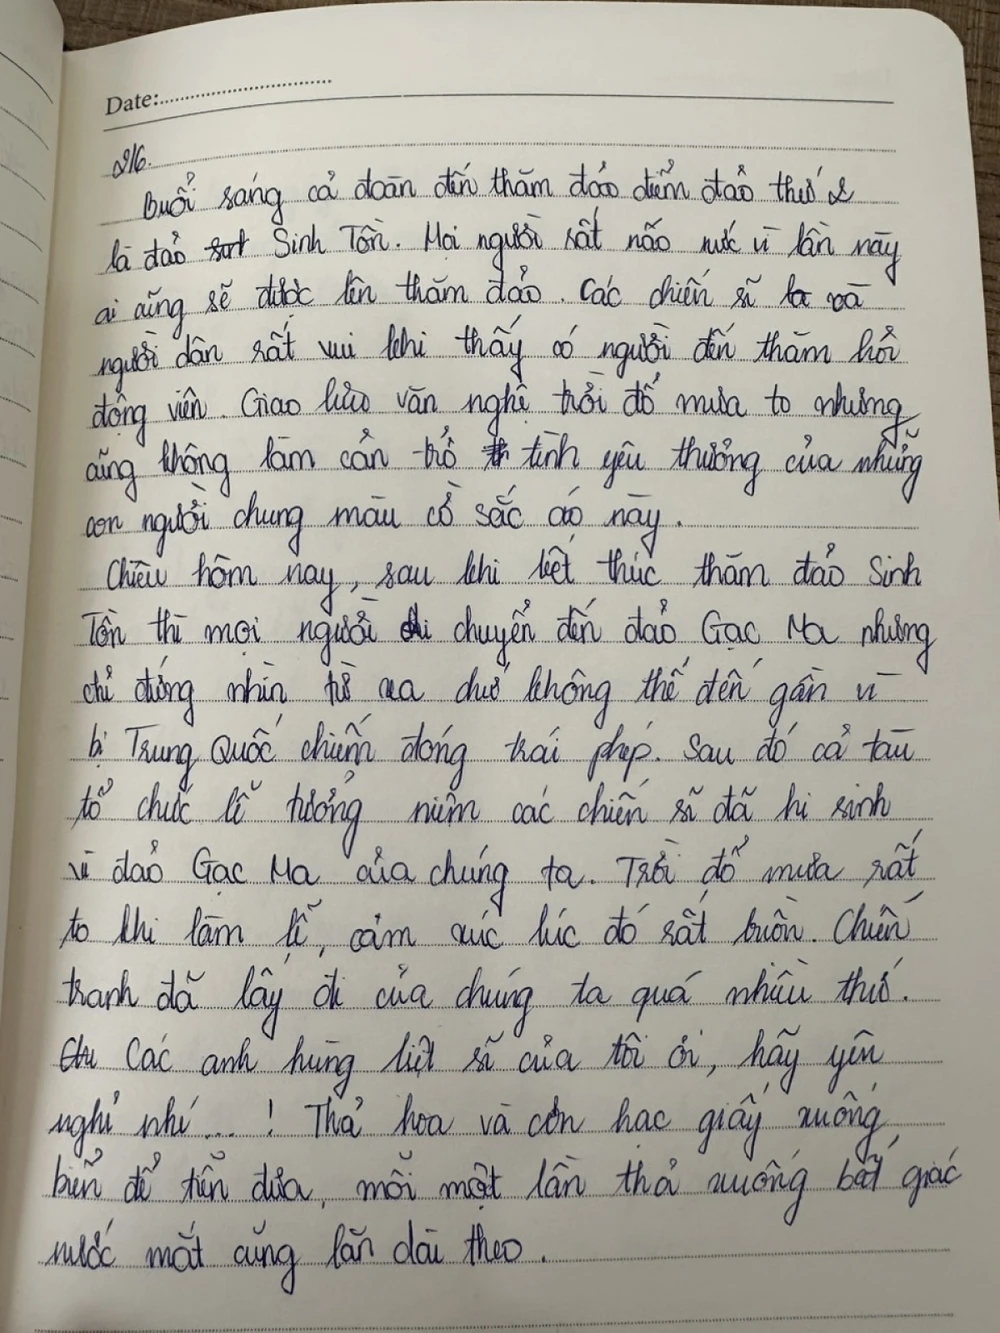 Date:
2/6.
Buổi sáng cả đoàn đến thăm đảo điểm đảo thứ 2
là đảo Sinh Tồn. Mọi người rất náo nức vì lần này
ai cũng sẽ được lên thăm đảo. Các chiến sĩ và
người dân rất vui khi thấy có người đến thăm hỏi
động viên. Giao lưu văn nghệ trời đổ mưa to nhưng
cũng không làm cản trở tình yêu thương của những
con người chung màu cờ sắc áo này.
Chiều hôm nay, sau khi kết thúc thăm đảo Sinh
Tồn thì mọi người di chuyển đến đảo Gạc Ma nhưng
chỉ đứng nhìn từ xa chứ không thể đến gần vì
bị Trung Quốc chiếm đóng trái phép. Sau đó cả tàu
tổ chức lễ tưởng niệm các chiến sĩ đã hi sinh
vì đảo Gạc Ma của chúng ta. Trời đổ mưa rất
to khi làm lễ, cảm xúc lúc đó rất buồn. Chiến
tranh đã lấy đi của chúng ta quá nhiều thứ.
Các anh hùng liệt sĩ của tôi ơi, hãy yên
nghỉ nhé...! Thả hoa và con hạc giấy xuống
biển để tiễn đưa, mỗi một lần thả xuống bất giác
nước mắt cũng lăn dài theo.